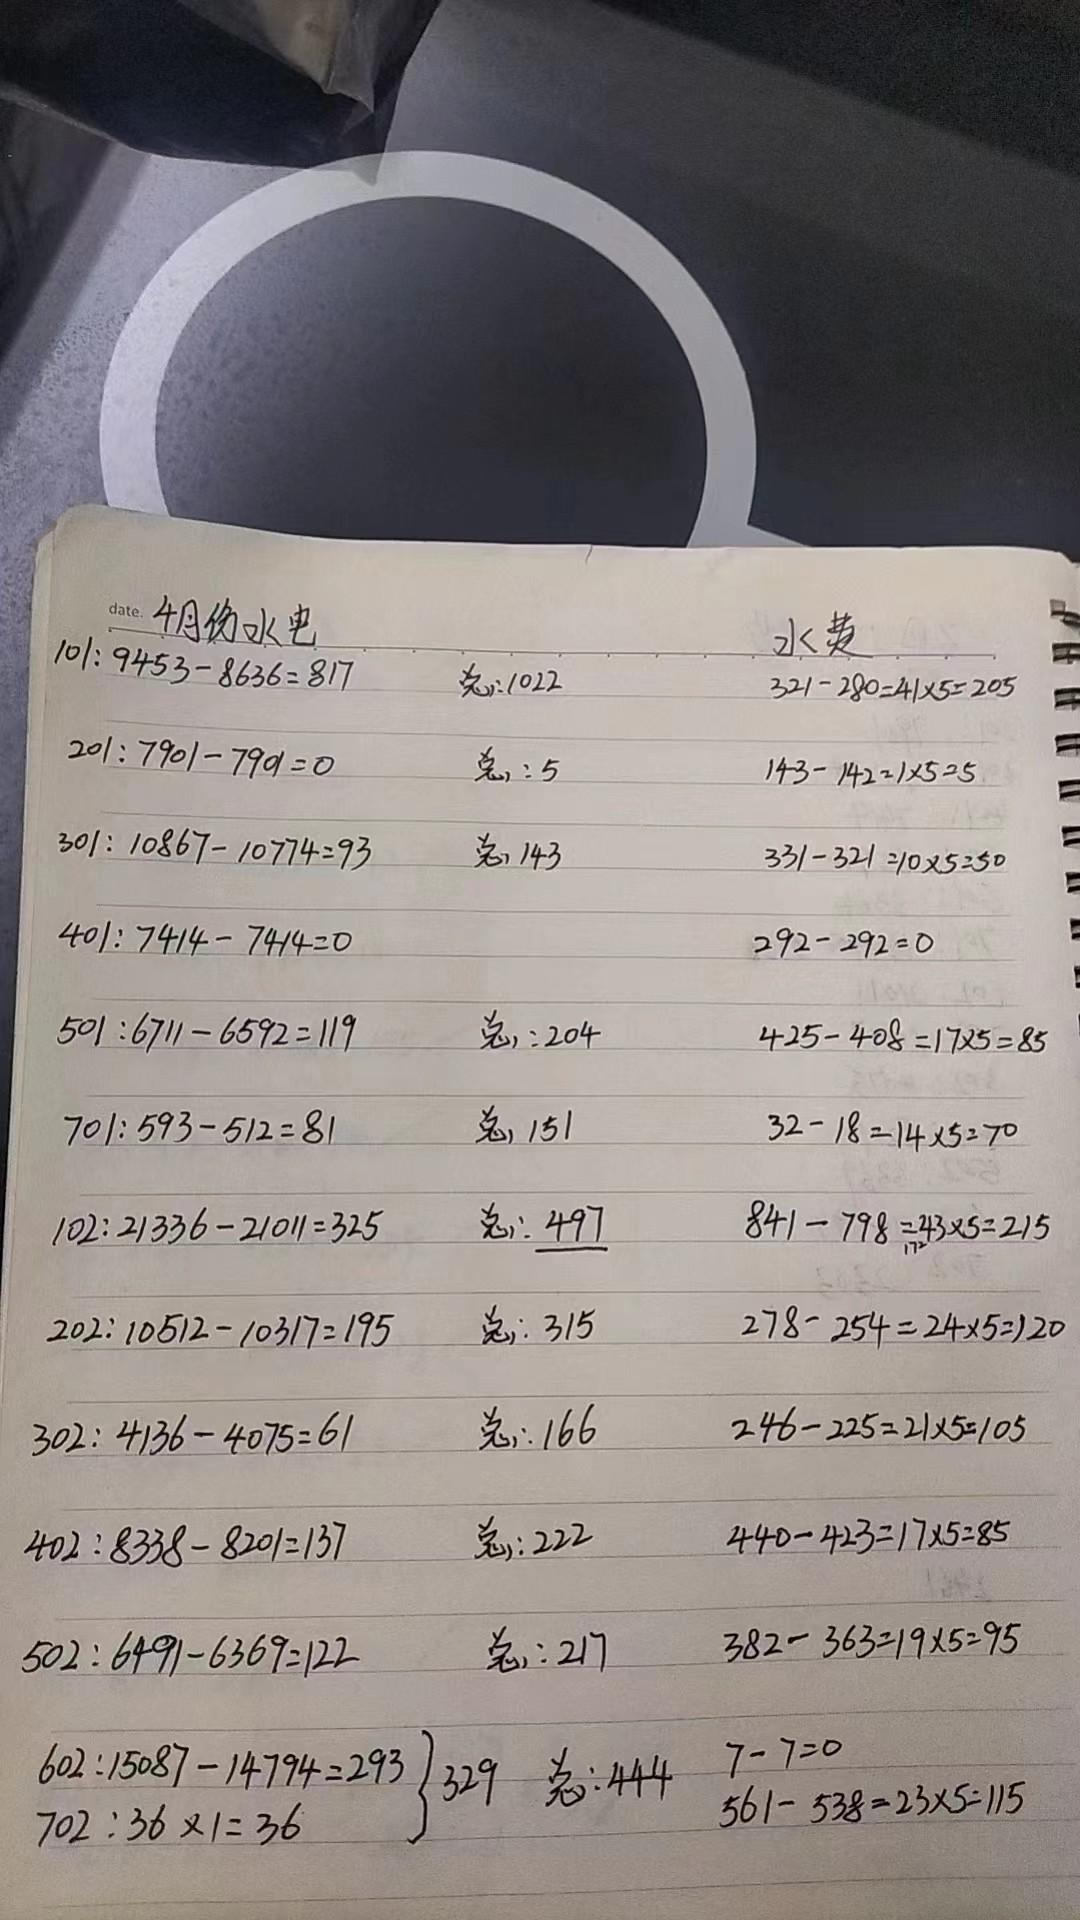 date. 4月份水电 水费
101: 9453-8636=817 总: 1022 321-280=41×5=205
201: 7901-7901=0 总: 5 143-142=1×5=5
301: 10867-10774=93 总, 143 331-321=10×5=50
401: 7414-7414=0 292-292=0
501: 6711-6592=119 总: 204 425-408=17×5=85
701: 593-512=81 总, 151 32-18=14×5=70
102: 21336-21011=325 总: 497 841-798=43×5=215
172
202: 10512-10317=195 总: 315 278-254=24×5=120
302: 4136-4075=61 总: 166 246-225=21×5=105
402: 8338-8201=137 总: 222 440-423=17×5=85
502: 6491-6369=122 总: 217 382-363=19×5=95
602: 15087-14794=293 } 329 总: 444 7-7=0
702: 36×1=36 561-538=23×5=115